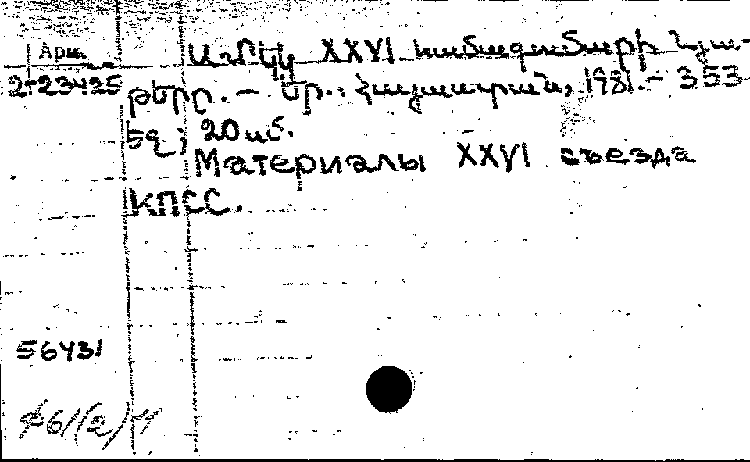 Арм.
ՍՄԿԿ XXVI համագումարի նյու-
2-23425
թերը. — Եր.: Հայաստան, 1981. – 353
էջ; 20 սմ.
Материалы XXVI съезда
КПСС.
56431